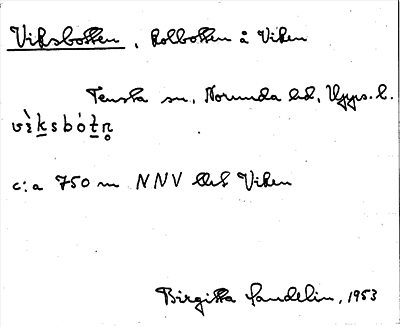 Viksbotten, Kolbotten å Viken
Tensta sn, Norunda hd, Upps. l.
vìksbót̠n̥
c:a 750 m NNV
Viken
Birgitta Sandelin, 1953